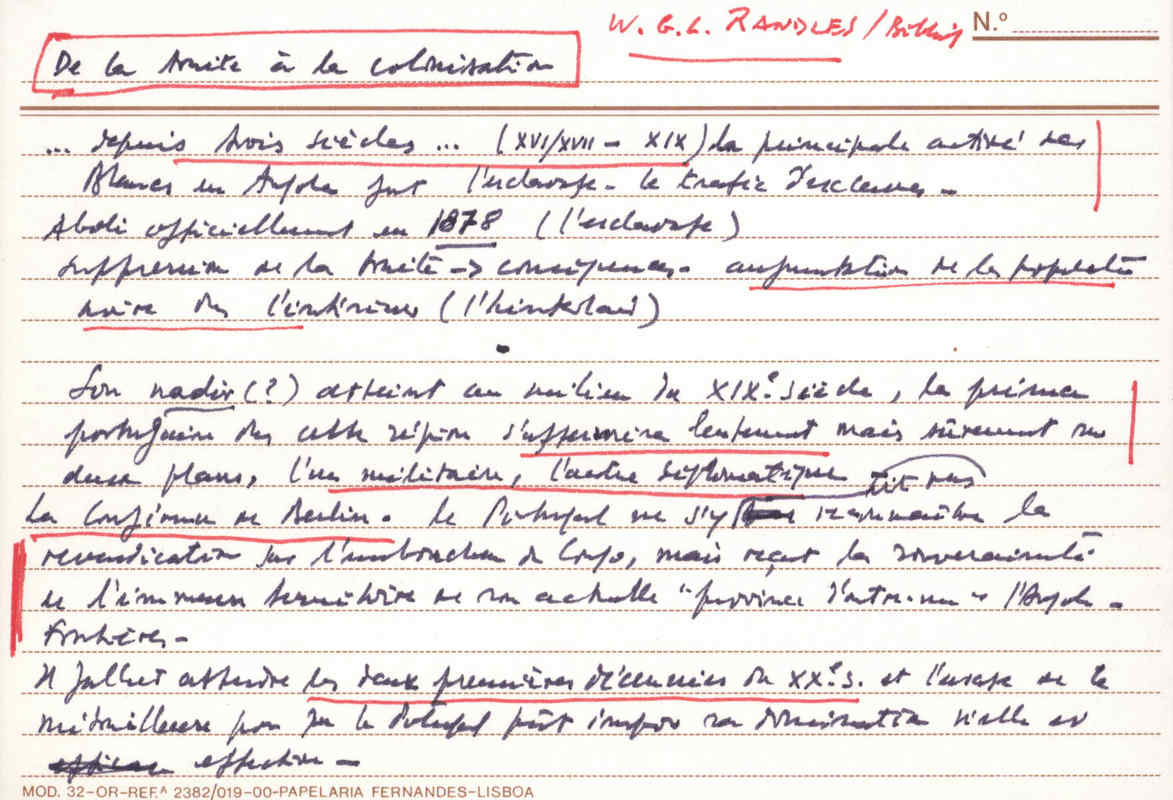 W. G. L. RANDLES / Biblig N.º
De la traite à la colonisation
... depuis trois siècles ... (XVI/XVII - XIX) la principale activité des
Blancs en Angola fut l'esclavage - le trafic d'esclaves -
Aboli officiellement en 1878 (l'esclavage)
suppression de la traite -> conséquences - augmentation de la population
noire dans l'intérieur (l'hinterland)
Son nadir (?) atteint au milieu du XIXe siècle, la présence
portugaise dans cette région s'affirmera lentement mais sûrement sur
deux plans, l'un militaire, l'autre diplomatique
La Conférence de Berlin. Le Portugal ne s'y vit pas reconnaître la
revendication sur l'embouchure du Congo, mais reçut la souveraineté
de l'immense territoire de son actuelle "province d'outre-mer" l'Angola -
frontières -
Il fallut attendre les deux premières décennies du XXe s. et l'usage de la
mitrailleuse pour que le Portugal pût imposer sa domination réelle et
effective -
MOD. 32-OR-REF.A 2382/019-00-PAPELARIA FERNANDES-LISBOA